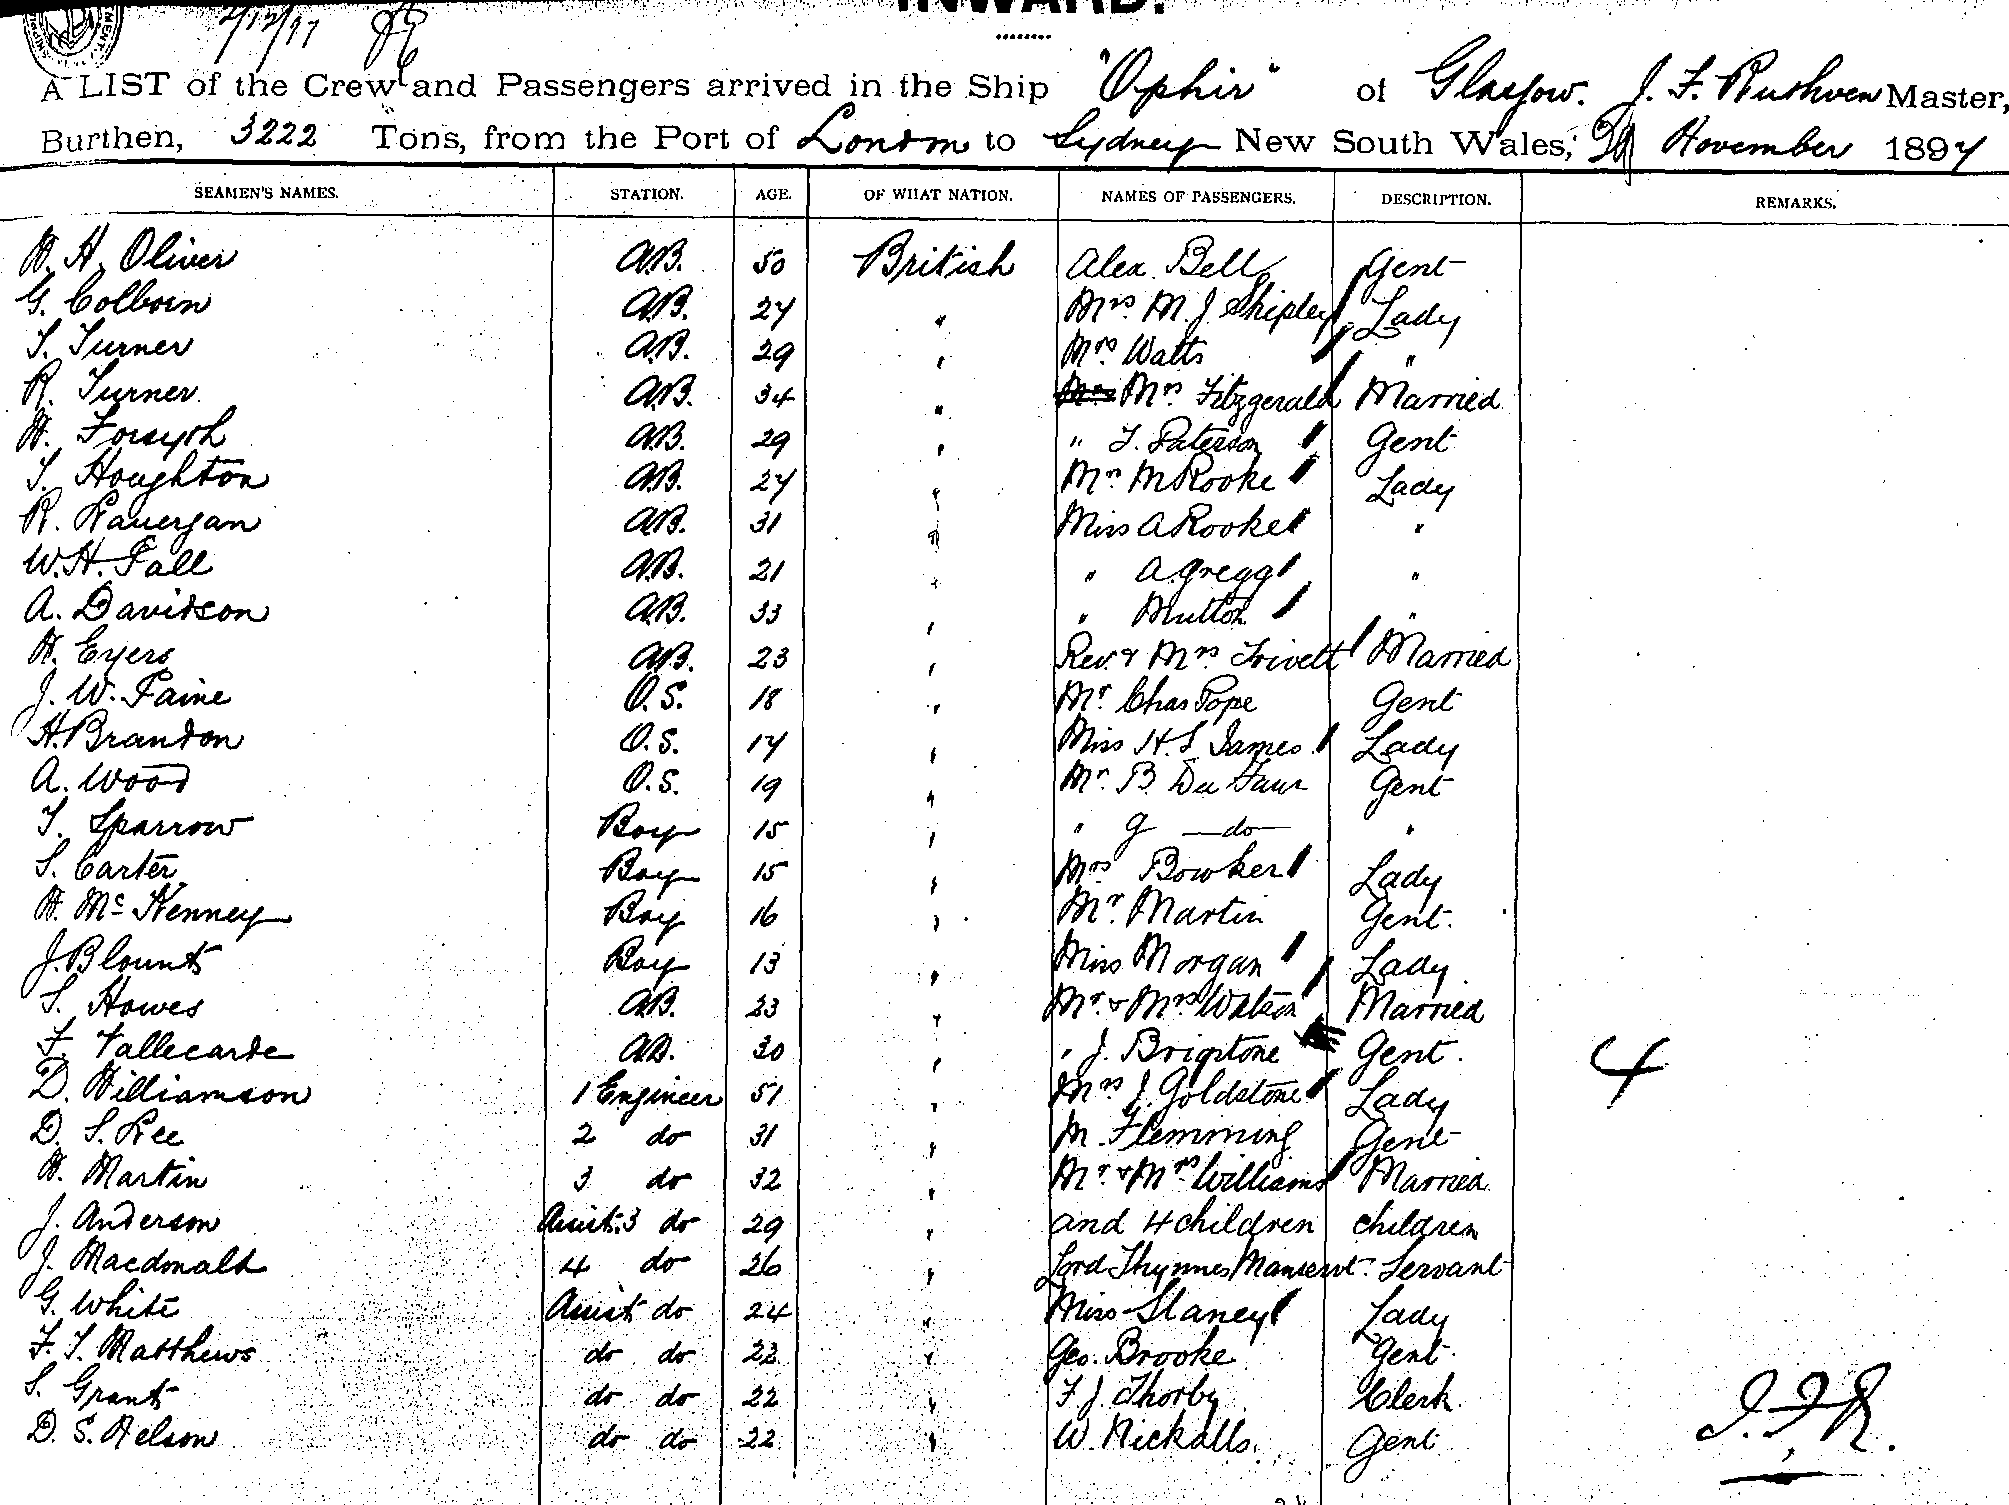 INWARD.
2/12/97
A LIST of the Crew and Passengers arrived in the Ship "Ophir" of Glasgow. J. F. Ruthven Master,
Burthen, 3222 Tons, from the Port of London to Sydney New South Wales, November 1897
SEAMEN'S NAMES. STATION. AGE. OF WHAT NATION. NAMES OF PASSENGERS. DESCRIPTION. REMARKS.
W. H. Oliver A.B. 50 British Alex. Bell Gent
G. Colborn A.B. 27 " Mrs M. J. Shipley Lady
T. Turner A.B. 29 " Mrs Watts "
R. Turner A.B. 34 " Mrs Fitzgerald Married
W. Forsyth A.B. 29 " " T. Paterson Gent
T. Houghton A.B. 27 " Mrs M Rooke Lady
R. A.B. 31 " Miss A Rooke "
W. H. Fall A.B. 21 " " A. Gregg "
A. Davidson A.B. 33 " " Mutton "
W. Eyers A.B. 23 " Rev. & Mrs Trivett Married
J. W. Paine O.S. 18 " Mr. Chas Pope Gent
H. Brandon O.S. 17 " Miss H. S. James Lady
A. Wood O.S. 19 " Mr. B. Du Faur Gent
T. Sparrow Boy 15 " " G —do— "
S. Carter Boy 15 " Mrs Bowker Lady
W. McKenney Boy 16 " Mr. Martin Gent.
J. Blount Boy 13 " Miss Morgan Lady
S. Howes A.B. 23 " Mr. & Mrs Watson Married
F. Vallecarde A.B. 30 " " J. Brigstone Gent. 4
D. Williamson 1 Engineer 51 " Mrs J. Goldstone Lady
D. S. Lee 2 do 31 " M. Flemming Gent
W. Martin 3 do 32 " Mr. & Mrs Williams Married
J. Anderson Assist. 3 do 29 " and 4 children children
J. Macdonald 4 do 26 " Lord Thynnes Manservt. Servant
G. White Assist do 24 " Miss Slaney Lady
F. T. Matthews do do 23 " Geo. Brooke Gent.
S. Grant do do 22 " F. J. Thorby Clerk
D. S. Nelson do do 22 " W. Nickalls. Gent
J. F. R.